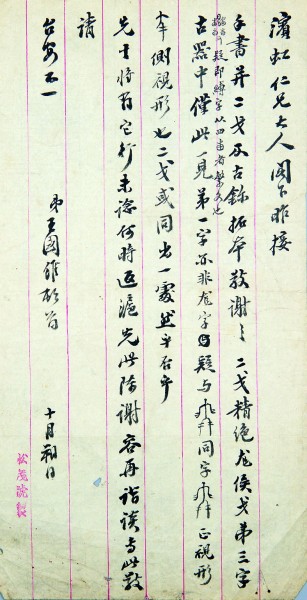 濱虹仁兄大人閣下昨接
手書并二戈及古鉨拓本敬謝〻二戈精絕尨侯戈弟三字
古器中僅此一見弟一字亦非尨字疑與同字正視形
側視形也二戈或同出一處然乎否乎
先生將有它行未諗何時返滬先此陳謝容再詣談专此敬
請
台安不一
弟王國維頓首 十月朔日